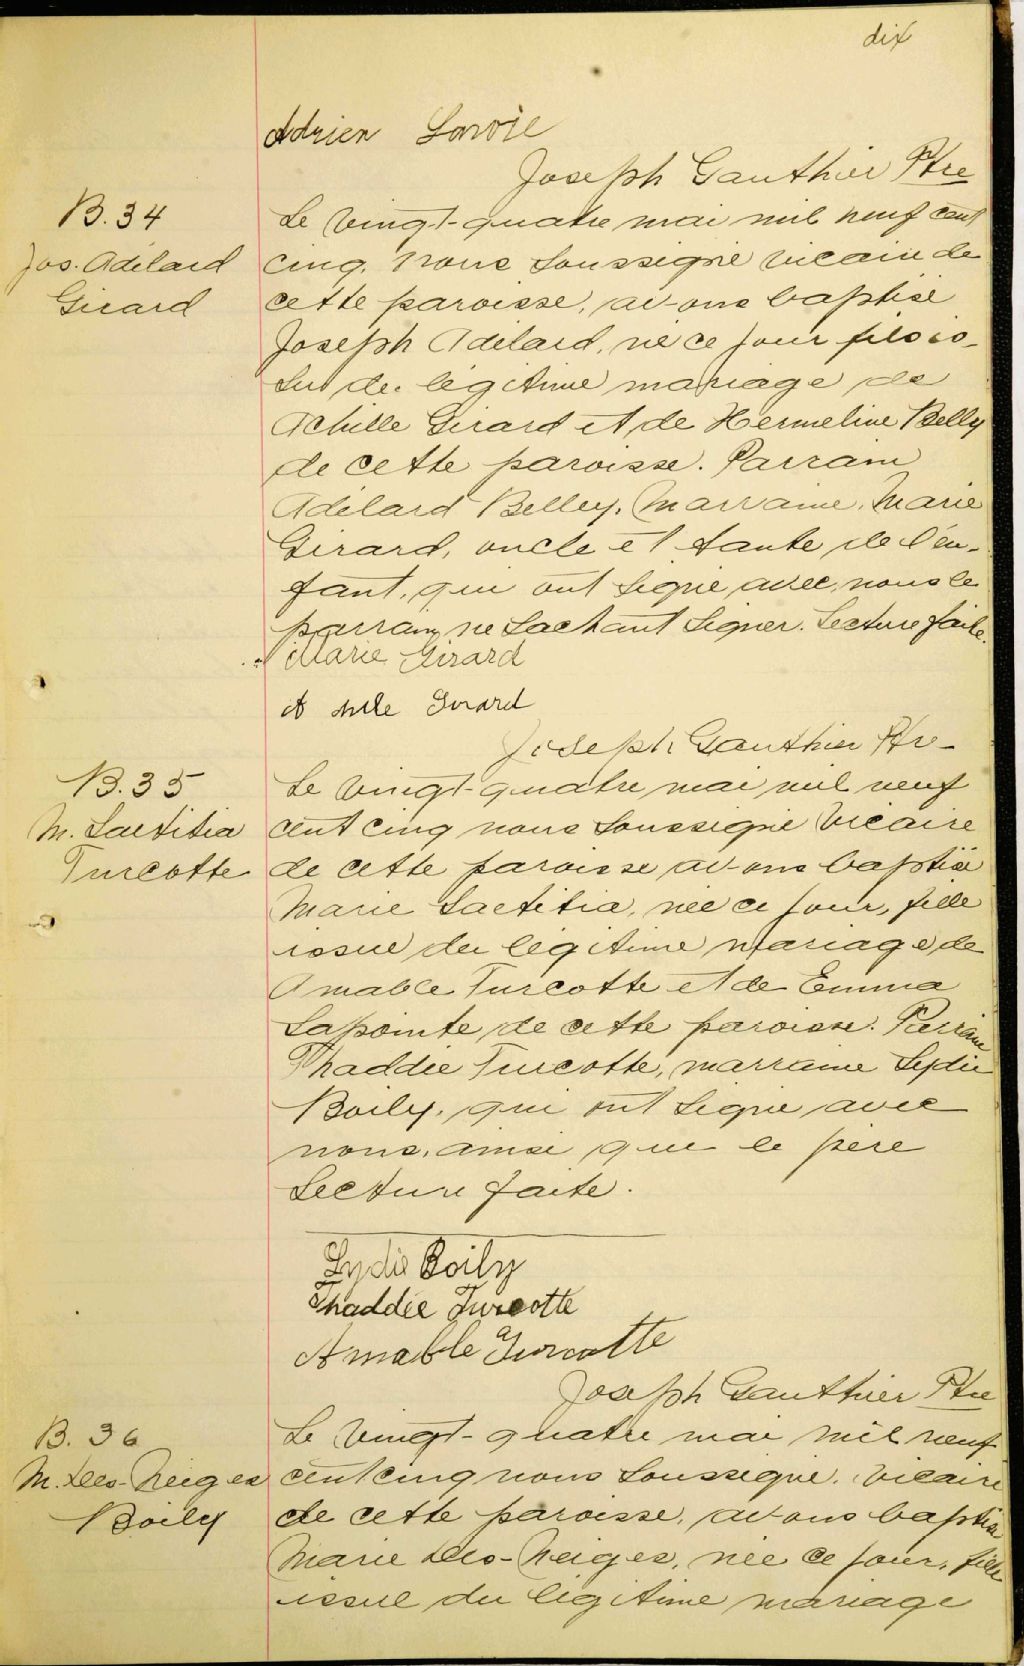 dix
Adrien Lavoie
Joseph Gauthier Ptre
B. 34
Jos. Adélard
Girard
Le vingt-quatre mai mil neuf cent
cinq, nous soussigné vicaire de
cette paroisse, avons baptisé
Joseph Adélard, né ce jour fils is-
su de légitime mariage de
Achille Girard et de Hermeline Belly
de cette paroisse. Parrain
Adélard Belley, Marraine, Marie
Girard, oncle et tante de l'en-
fant, qui ont signé avec nous le
parrain ne sachant signer. Lecture faite.
Marie Girard
Achille Girard
Joseph Gauthier Ptre
B. 35
M. Laetitia
Turcotte
Le vingt-quatre mai mil neuf
cent cinq nous soussigné Vicaire
de cette paroisse avons baptisé
Marie Laetitia, née ce jour, fille
issue du légitime mariage de
Amable Turcotte et de Emma
Lapointe de cette paroisse. Parrain
Thaddée Turcotte, marraine Lydie
Boily, qui ont signé avec
nous, ainsi que le père
Lecture faite.
Lydie Boily
Thaddée Turcotte
Amable Turcotte
Joseph Gauthier Ptre
B. 36
M. des-Neiges
Boily
Le vingt-quatre mai mil neuf
cent cinq nous soussigné, vicaire
de cette paroisse, avons baptisé
Marie des-Neiges, née ce jour, fille
issue du légitime mariage